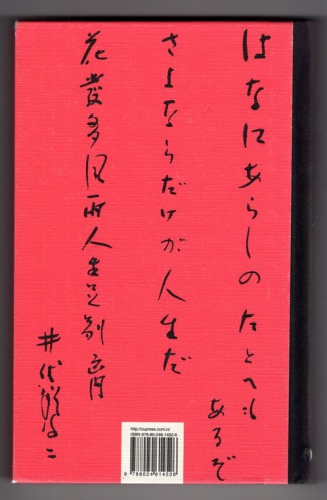 はなにあらしのたとへも
あるぞ
さよならだけが人生だ
花發多風雨人生足別離
井伏鱒二
http://cupress.cuni.cz
ISBN 978-80-246-1452-6
9 788024 614526